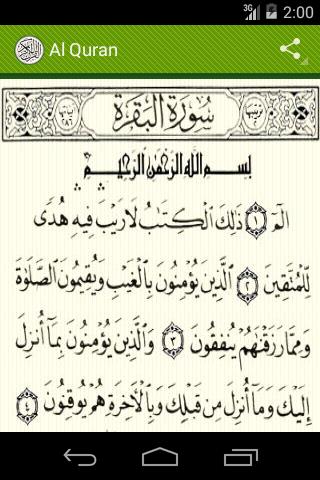 3G 2:00
Al Quran
سُورَةُ الْبَقَرَةِ
بِسْمِ اللَّهِ الرَّحْمَٰنِ الرَّحِيمِ
الٓمٓ ۝١ ذَٰلِكَ الْكِتَٰبُ لَا رَيْبَ فِيهِ هُدًى
لِّلْمُتَّقِينَ ۝٢ الَّذِينَ يُؤْمِنُونَ بِالْغَيْبِ وَيُقِيمُونَ الصَّلَوٰةَ
وَمِمَّا رَزَقْنَٰهُمْ يُنفِقُونَ ۝٣ وَالَّذِينَ يُؤْمِنُونَ بِمَآ أُنزِلَ
إِلَيْكَ وَمَآ أُنزِلَ مِن قَبْلِكَ وَبِالْءَاخِرَةِ هُمْ يُوقِنُونَ ۝٤